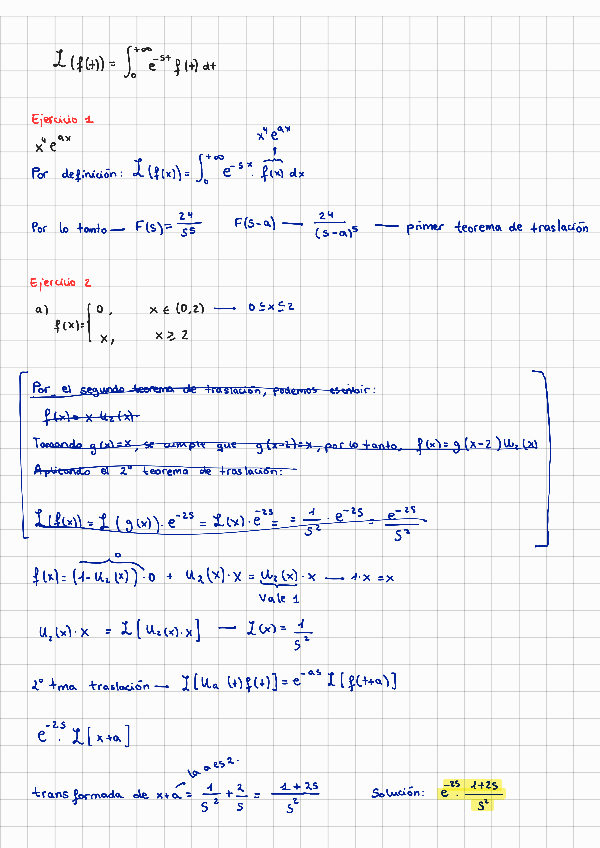 ℒ(f(t)) = ∫₀^{+∞} e^{-st} f(t) dt
Ejercicio 1
x⁴e^{ax}
x⁴e^{ax}
Por definición: ℒ(f(x)) = ∫₀^{+∞} e^{-sx} · f(x) dx
Por lo tanto — F(s) = 24/s⁵ F(s-a) — 24/(s-a)⁵ — primer teorema de traslación
Ejercicio 2
a) f(x) = { 0, x ∈ (0,2) → 0 ≤ x ≤ 2
x, x ≥ 2
Por el segundo teorema de traslación, podemos escribir:
f(x) = x · u₂(x)
Tomando g(x)=x, se cumple que g(x-2)=x, por lo tanto, f(x) = g(x-2) u₂(x)
Aplicando el 2º teorema de traslación:
ℒ(f(x)) = ℒ(g(x)) · e^{-2s} = ℒ(x) · e^{-2s} = = 1/s² · e^{-2s} = e^{-2s}/s²
0
f(x) = (1-u₂(x)) · 0 + u₂(x) · x = u₂(x) · x → 1·x = x
Vale 1
u₂(x) · x = ℒ[u₂(x) · x] — ℒ(x) = 1/s²
2º tma traslación → ℒ[uₐ (t) f(t)] = e^{-as} ℒ[f(t+a)]
e^{-2s} · ℒ[x+a]
la a es 2.
transformada de x+a = 1/s² + 2/s = 1+2s/s² Solución: e^{-2s} · 1+2s/s²